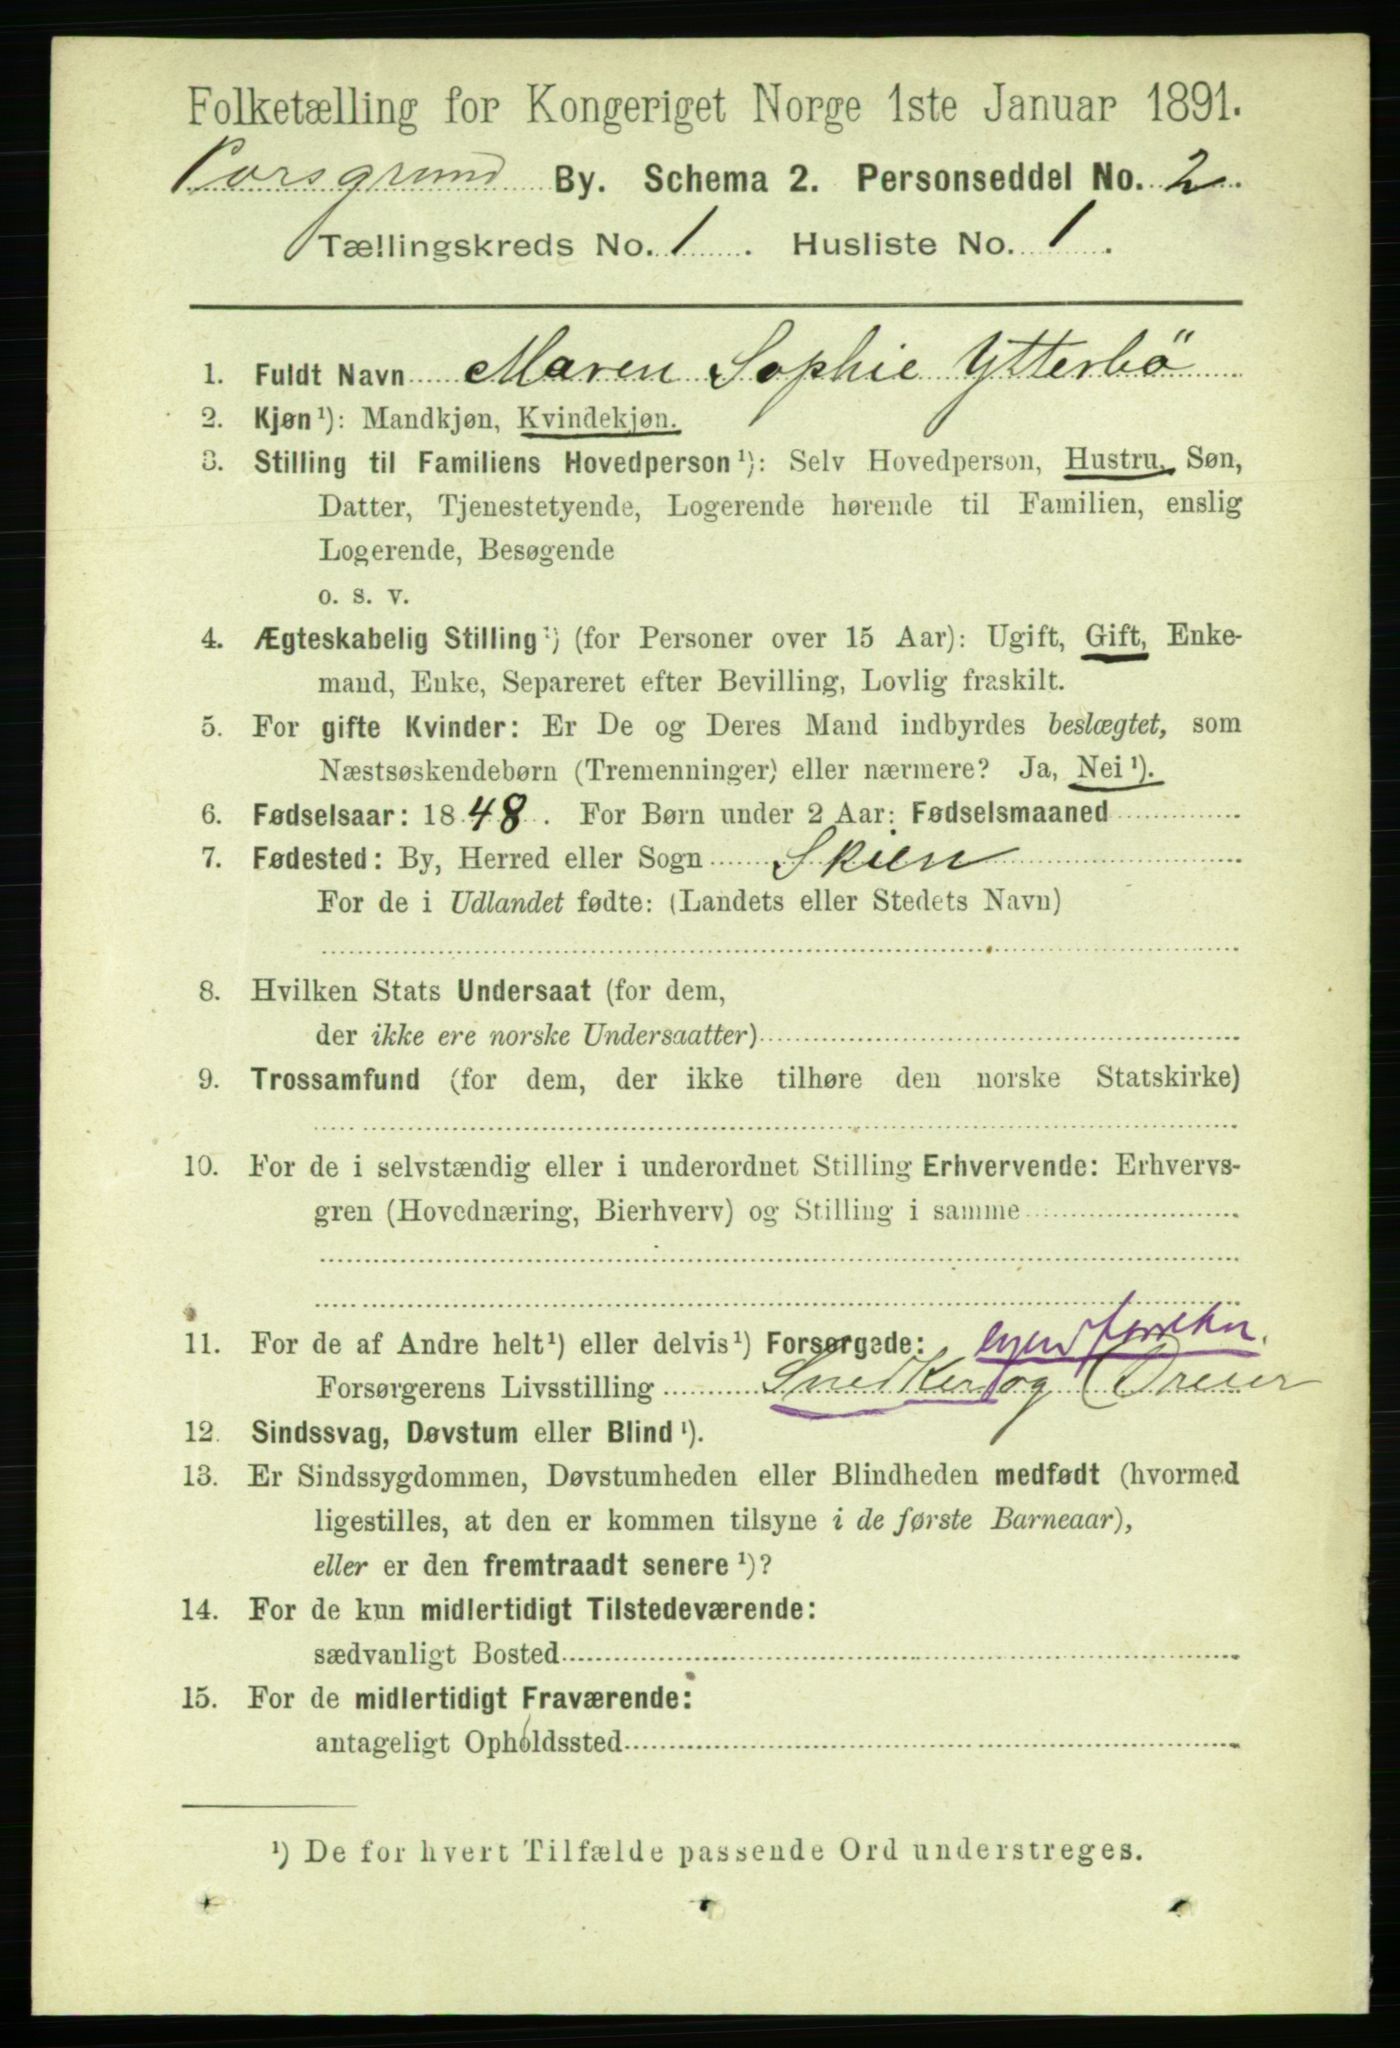 Folketælling for Kongeriget Norge 1ste Januar 1891.
Porsgrund By. Schema 2. Personseddel No. 2.
Tællingskreds No. 1. Husliste No. 1.
1. Fuldt Navn Maren Sophie Ytterbö
2. Kjøn¹): Mandkjøn, Kvindekjøn.
3. Stilling til Familiens Hovedperson¹): Selv Hovedperson, Hustru, Søn,
Datter, Tjenestetyende, Logerende hørende til Familien, enslig
Logerende, Besøgende
o. s. v.
4. Ægteskabelig Stilling¹) (for Personer over 15 Aar): Ugift, Gift, Enke-
mand, Enke, Separeret efter Bevilling, Lovlig fraskilt.
5. For gifte Kvinder: Er De og Deres Mand indbyrdes beslægtet, som
Næstsøskendebørn (Tremenninger) eller nærmere? Ja, Nei¹).
6. Fødselsaar: 1848. For Børn under 2 Aar: Fødselsmaaned
7. Fødested: By, Herred eller Sogn Skien
For de i Udlandet fødte: (Landets eller Stedets Navn)
8. Hvilken Stats Undersaat (for dem,
der ikke ere norske Undersaatter)
9. Trossamfund (for dem, der ikke tilhøre den norske Statskirke)
10. For de i selvstændig eller i underordnet Stilling Erhvervende: Erhvervs-
gren (Hovednæring, Bierhverv) og Stilling i samme
11. For de af Andre helt¹) eller delvis¹) Forsørgede:
Forsørgerens Livsstilling Snedker og Dreier
12. Sindssvag, Døvstum eller Blind¹).
13. Er Sindssygdommen, Døvstumheden eller Blindheden medfødt (hvormed
ligestilles, at den er kommen tilsyne i de første Barneaar),
eller er den fremtraadt senere¹)?
14. For de kun midlertidigt Tilstedeværende:
sædvanligt Bosted
15. For de midlertidigt Fraværende:
antageligt Opholdssted
¹) De for hvert Tilfælde passende Ord understreges.